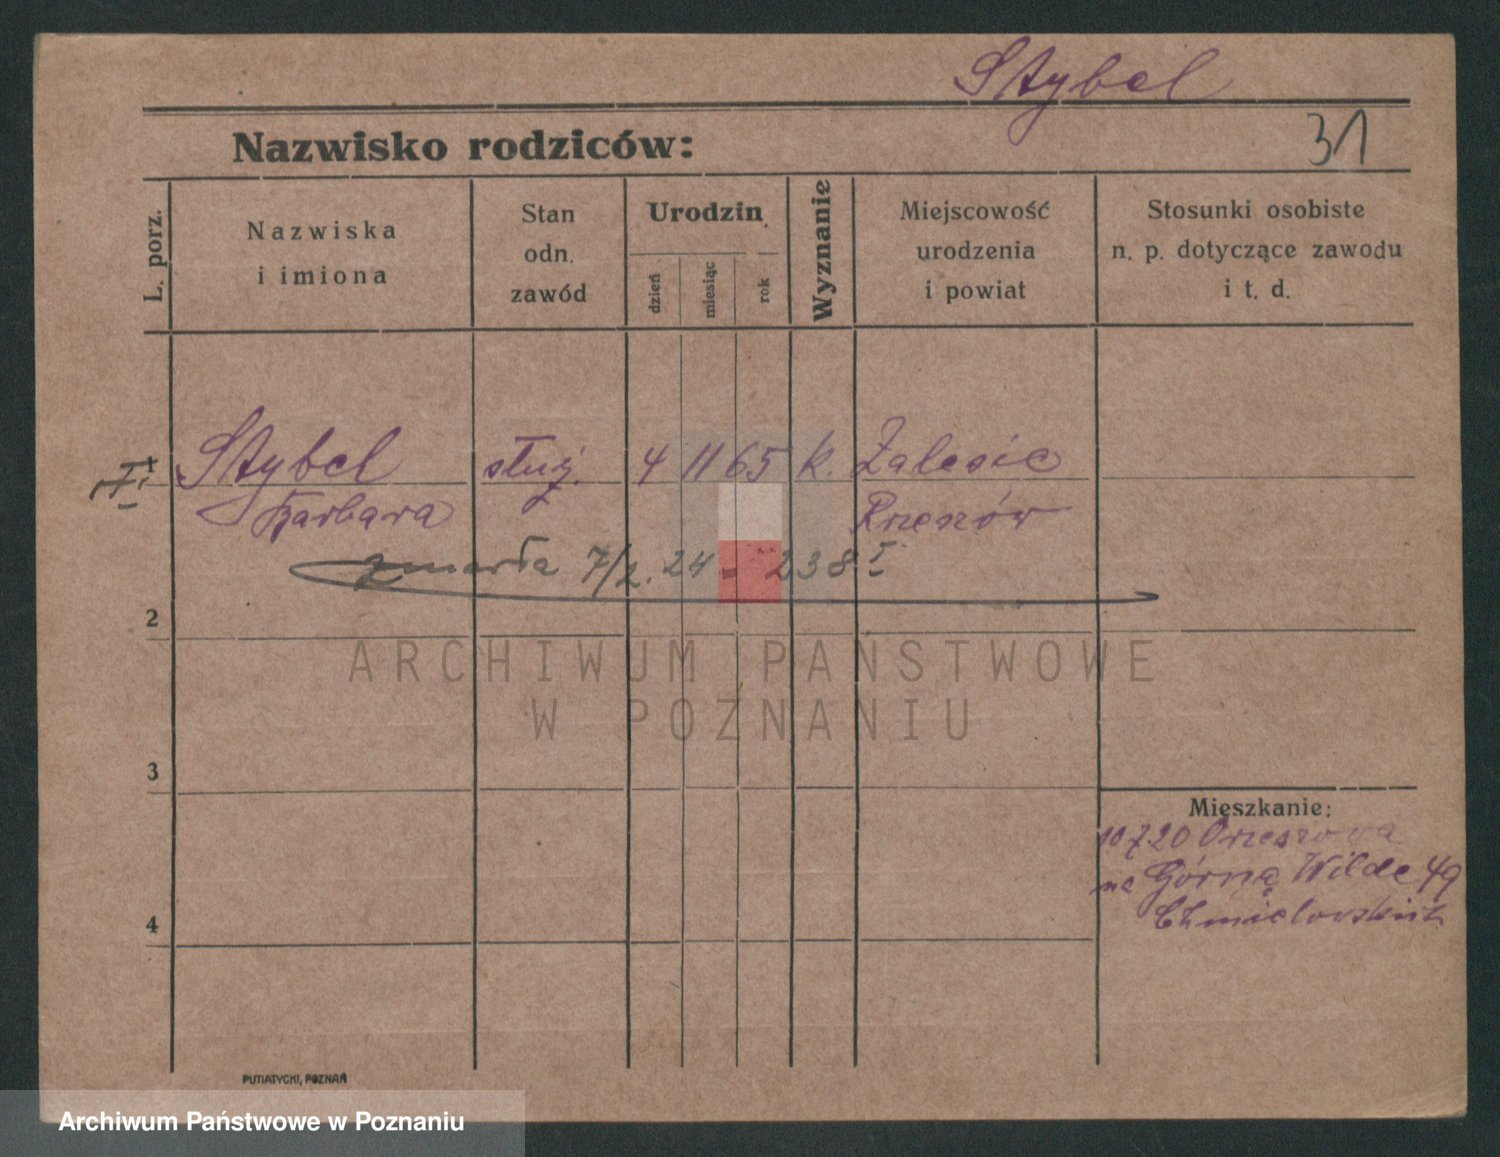 Stybel
Nazwisko rodziców:
31
L. porz.
Nazwiska
i imiona
Stan
odn.
zawód
Urodzin
dzień
miesiąc
rok
Wyznanie
Miejscowość
urodzenia
i powiat
Stosunki osobiste
n. p. dotyczące zawodu
i t. d.
1 Stybel służ. 4 11 65 k. Zalesie
Barbara Rzeszów
zmarła 7/2. 24 - 238 I
2
ARCHIWUM PAŃSTWOWE
W POZNANIU
3
Mieszkanie:
10 7 20 Orzeszowa
na Górną Wildę 49
4
PUTIATYCKI, POZNAŃ
Archiwum Państwowe w Poznaniu